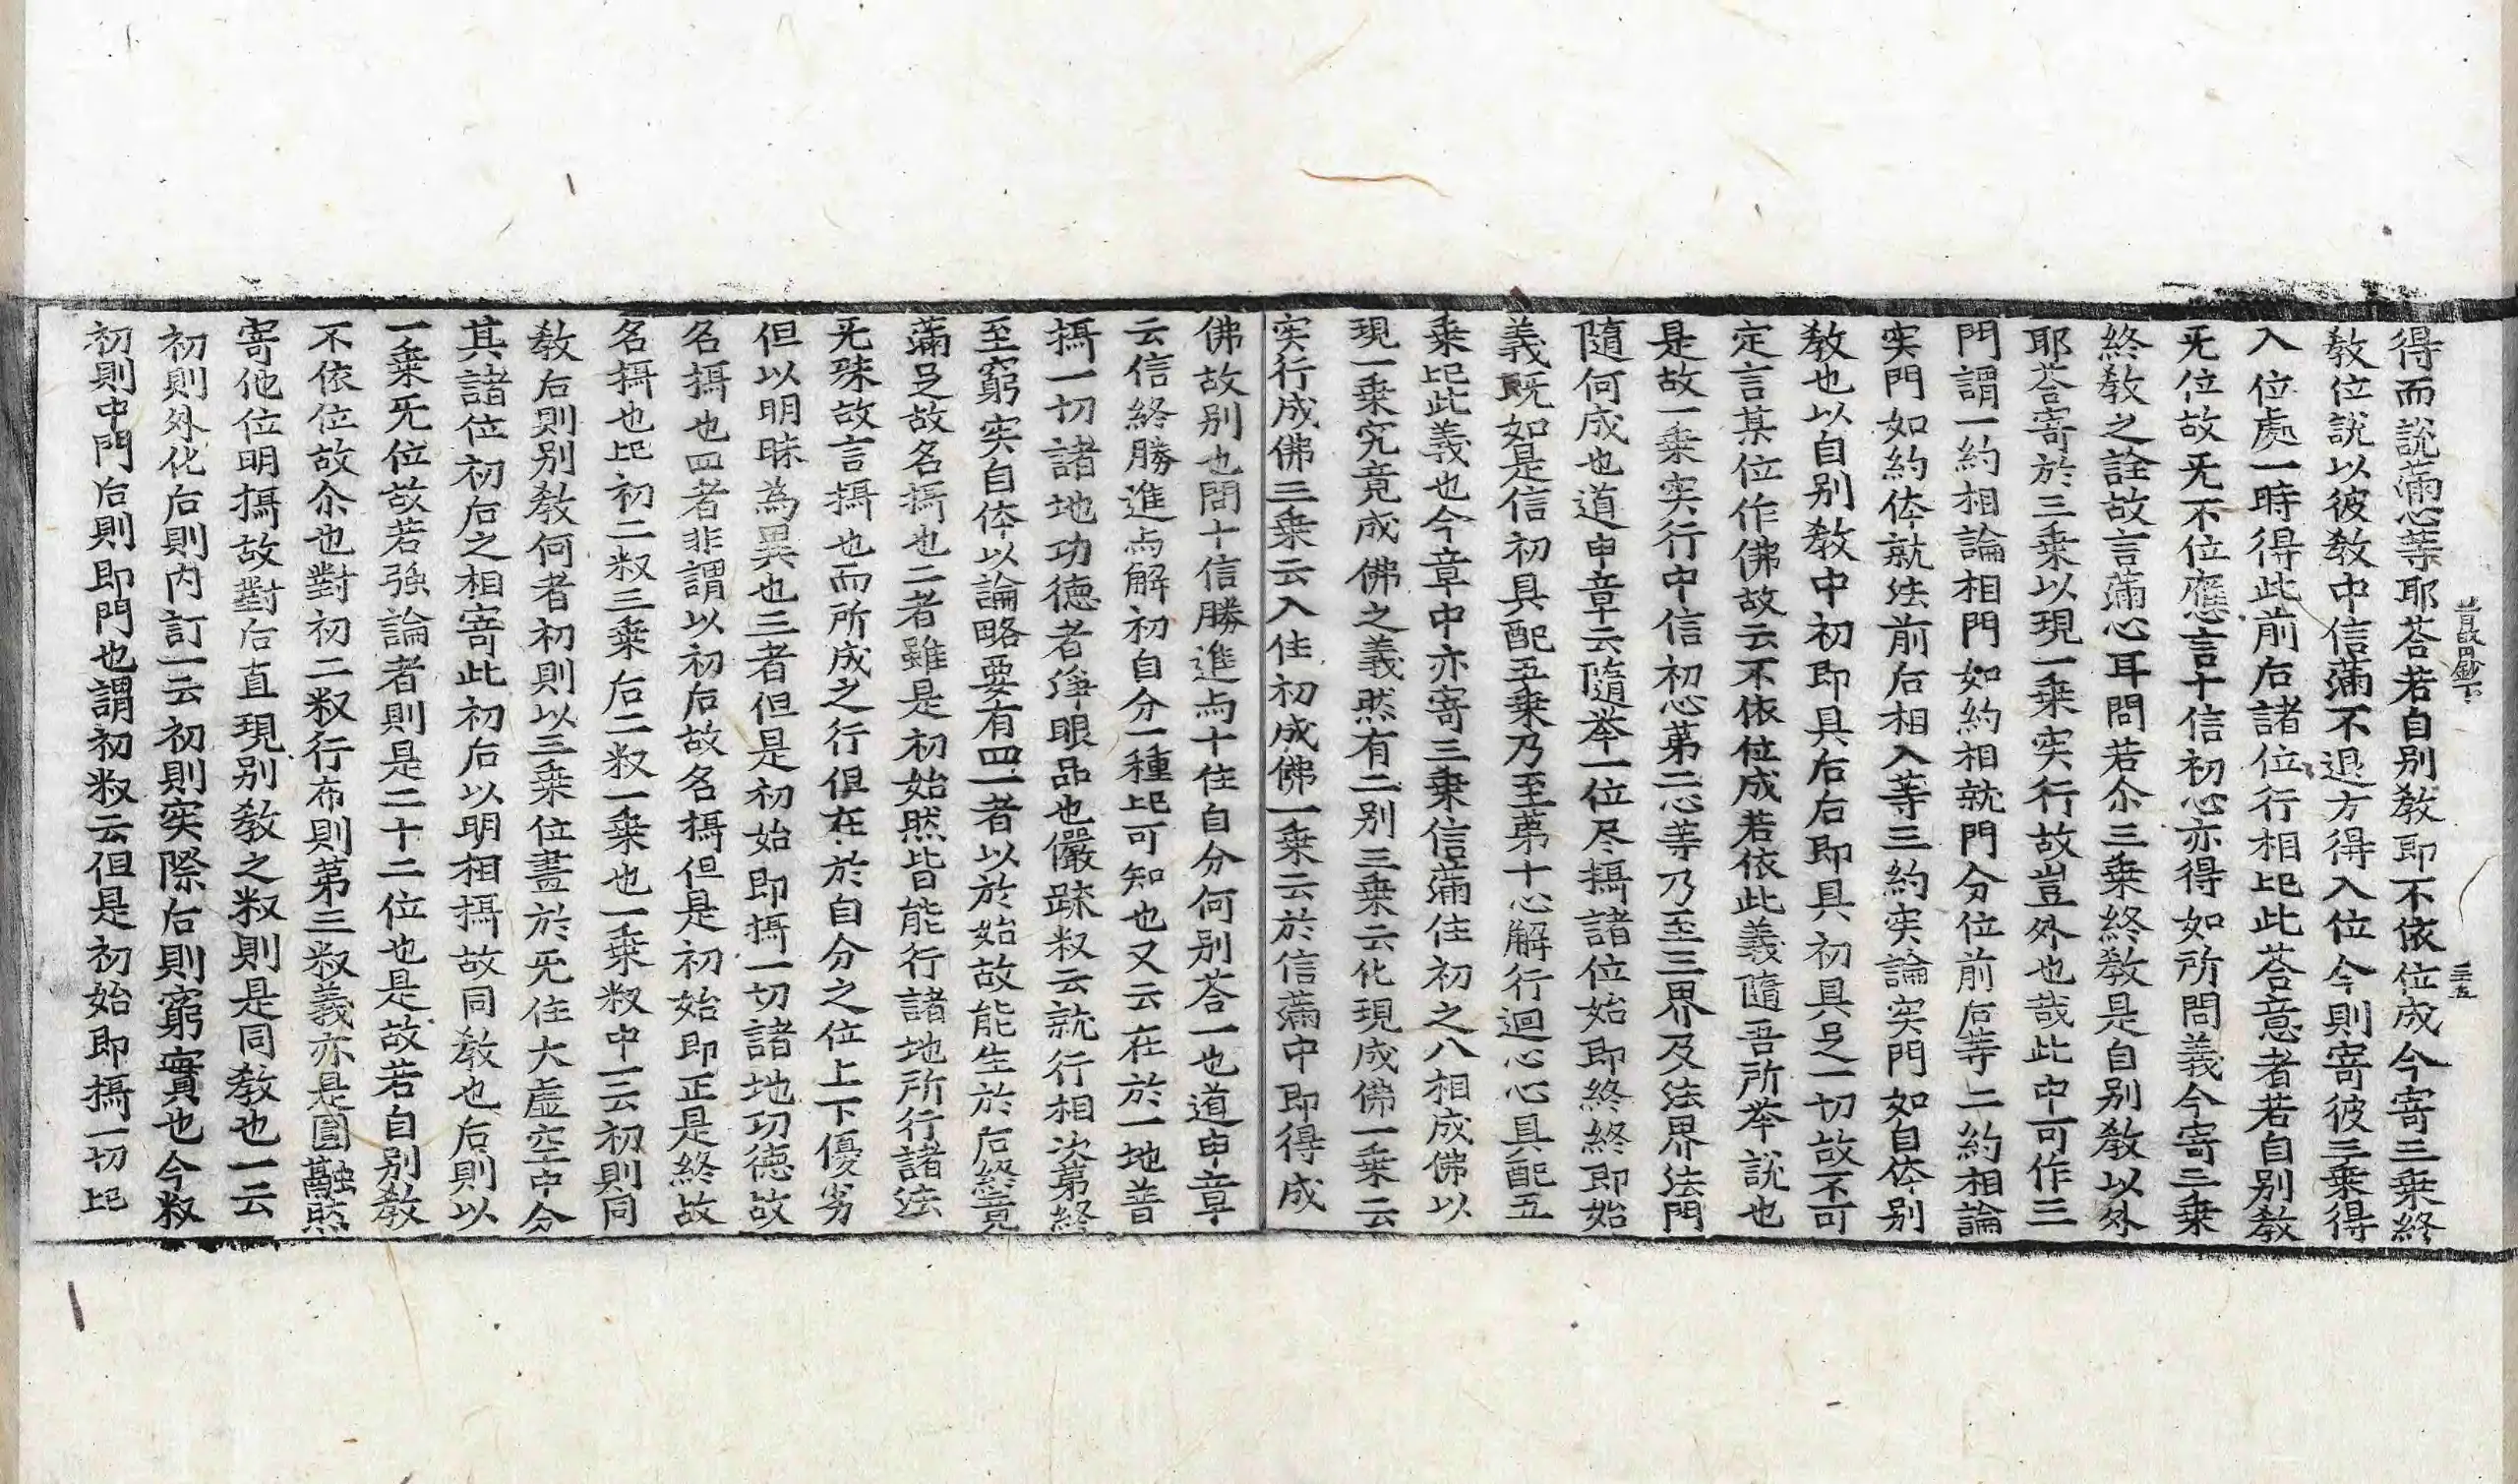 旨㱕囙鈔下 三五
得而說薗心等耶荅若自别教即不依位成今寄三乗終
教位說以彼教中信薗不退方得入位今則寄彼三乗得
入位處一時得此前后諸位行相㠯此荅意者若自别教
旡位故旡不位應言十信初心亦得如所問義今寄三乗
終教之詮故言薗心耳問若尒三乗終教是自别教以外
耶荅寄於三乗以現一乗実行故豈外也哉此中可作三
門謂一約相論相門如約相就門分位前后等二約相論
実門如約体就法前后相入等三約実論実門如自体别
教也以自别教中初即具后后即具初具足一切故不可
定言某位作佛故云不依位成若依此義隨吾所举說也
是故一乗実行中信初心第二心等乃至三界及法界法門
隨何成也道申章云隨举一位尽攝諸位始即終終即始
義既如是信初具配五乗乃至第十心解行迴心心具配五
乗㠯此義也今章中亦寄三乗信薗住初之八相成佛以
現一乗究竟成佛之義然有二别三乗云化現成佛一乗云
実行成佛三乗云入住初成佛一乗云於信薗中即得成
佛故别也問十信勝進与十住自分何别荅一也道申章
云信終勝進与解初自分一種㠯可知也又云在於一地普
攝一切諸地功德者淨眼品也儼踈䆁云就行相次第終
至窮実自体以論略要有四一者以於始故能生於后終竟
薗足故名攝也二者雖是初始然皆能行諸地所行諸法
旡殊故言攝也而所成之行俱在於自分之位上下優劣
但以明昧為異也三者但是初始即攝一切諸地功德故
名攝也四者非謂以初后故名攝但是初始即正是終故
名攝也㠯初二䆁三乗后二䆁一乗也一乗䆁中一云初則同
教后則别教何者初則以三乗位盡於旡住大虛空中分
其諸位初后之相寄此初后以明相攝故同教也后則以
一乗旡位故若強論者則是二十二位也是故若自别教
不依位故尒也對初二䆁行布則第三䆁義亦是圓融然
寄他位明攝故對后直現别教之䆁則是同教也一云
初則外化后則内訂一云初則実際后則窮實也今䆁
初則中門后則即門也謂初䆁云但是初始即攝一切㠯